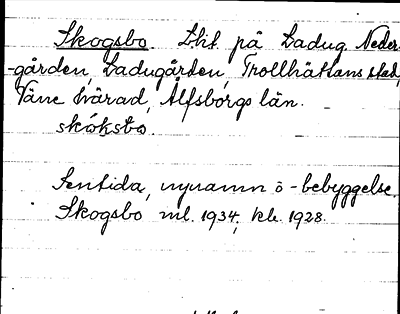 Skogsbo. Lht på Ladug. Neder-
-gården, Ladugården, Trollhättans stad,
Väne härad, Älfsborgs län.
skóksbo
Sentida, nynamn o - bebyggelse.
Skogsbo ml. 1934, kk. 1928.